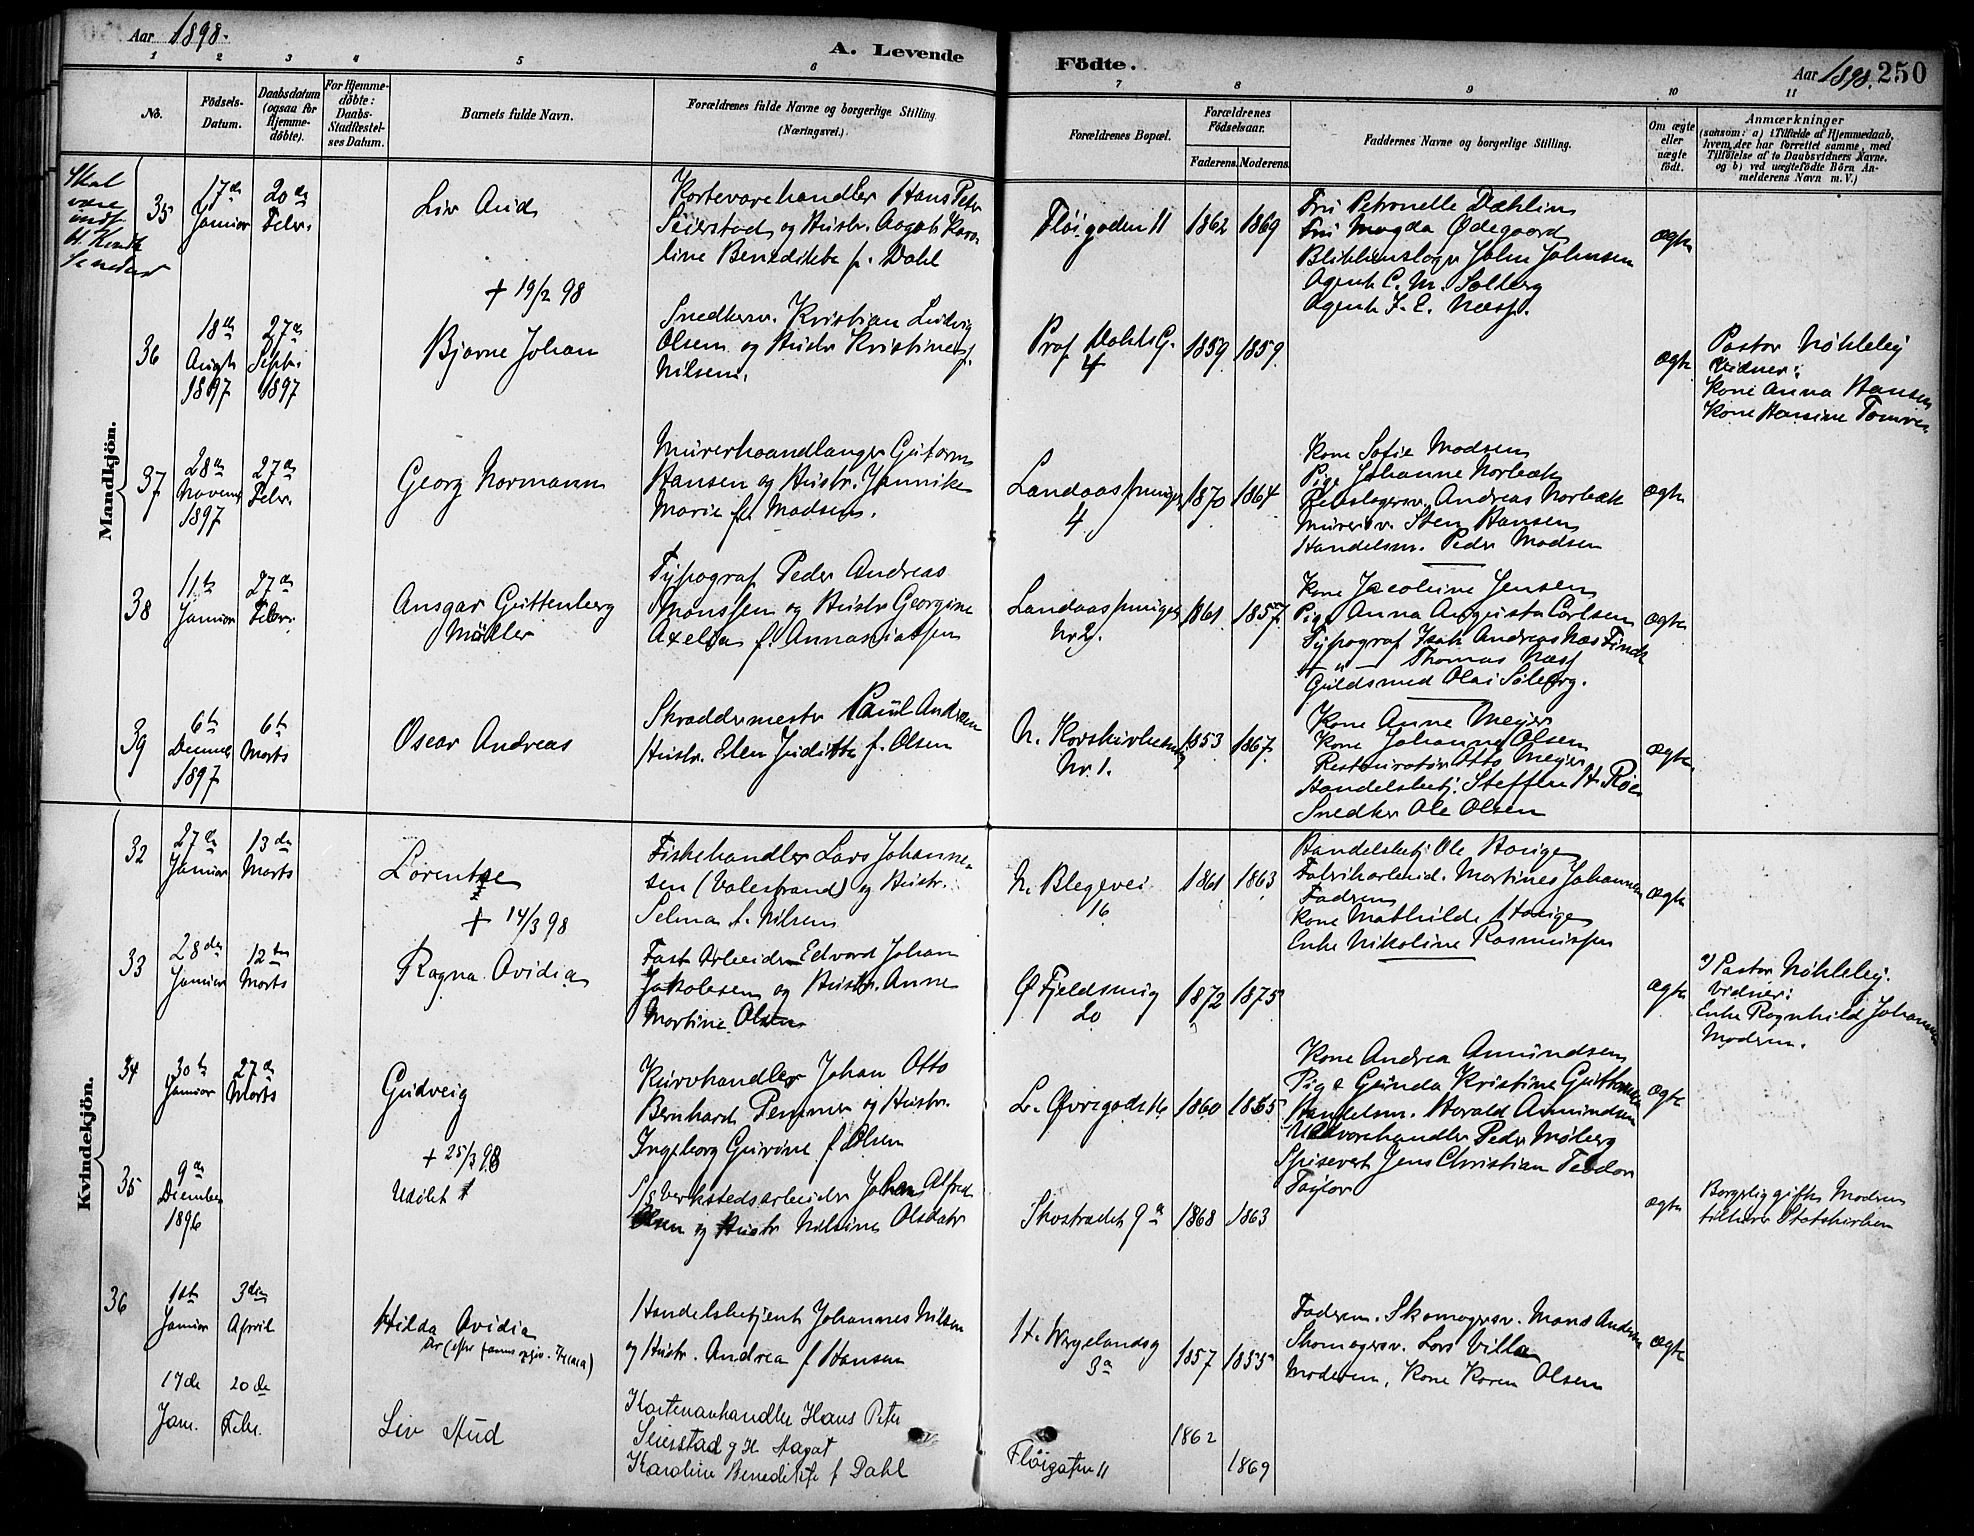 Aar 1898.
A. Levende Födte.
Aar 1898. 250
1 2 3 4 5 6 7 8 9 10 11
No.
Födsels-Datum.
Daabsdatum (ogsaa for Hjemmedöbte).
For Hjemmedöbte: Daabs-Stadfæstelses Datum.
Barnets fulde Navn.
Forældrenes fulde Navne og borgerlige Stilling (Næringsvei).
Forældrenes Bopæl.
Forældrenes Födselsaar.
Faderens. Moderens.
Faddernes Navne og borgerlige Stilling.
Om ægte eller uægte født.
Anmærkninger
(saasom: a) i Tilfælde af Hjemmedaab, hvem, der har forrettet samme, med Tilföielse af to Daabsvidners Navne. og b) ved uægtefödte Börn Anmelderens Navn m. V.)
Mandkjön.
Skal være indf
35
17de Januar
20de Febr.
Liv Aud
Kortevarehandler Hans Peter
Seierstad og Hustr. Aagot Karo
line Benedikte f. Dahl
Fløigaden 11
1862 1869
Fru Petronelle Dæhlin
Fru Magda Ødegaard
Blikkenslager John Johnsen
Agent C. M. Solberg
Agent J. E. Næss.
ægte
+ 19/2 98
36
18de Augt 1897
27de Septbr 1897
Bjarne Johan
Snedkersv. Kristian Ludvig
Olsen og Hustr Kristine f.
Nilsen.
Prof Dahls G. 4
1859 1859
ægte
Pastor Nökleby
Vidner:
Kone Anna Hansen
Kone Hansine
37
28de Novemb 1897
27de Febr.
Georg Normann
Murerhaandlanger Gutorm
Hansen og Hustr. Jannike
Marie f. Madsen.
Landaassmuget 4
1870 1864
Kone Sofie Madsen
Pige Johanne Norbæk
Rebslagersv. Andreas Norbæk
Murersv. Sten Hansen
Handelsm. Peder Madsen
ægte
38
11te Januar
27de Febr.
Ansgar Guttenberg
Müller
Typograf Peder Andreas
Monssen og Hustr Georgine
Axelsa f. Annaniassen
Landaassmuget Nr 2.
1861 1857
Kone Jacobine Jensen
Pige Anna Augusta Carlsen
Typograf Isak Andreas Næs Finck
— " — Thomas Næss
Guldsmed Olai Solberg.
ægte
39
6te Decemb 1897
6te Marts
Oscar Andreas
Skræddermester Paul Andersen
Hustr. Elen Juditte f. Olsen
N. Korskirkealm Nr. 1.
1853 1867
Kone Anne Meyer
Kone Johanne Olsen
Restauratør Otto Meyer
Handelsbetj. Steffen H. Røe
Snedker Ole Olsen
ægte
Kvindekjön.
32
27de Januar
13de Marts
Lorentze
+ 14/3 98
Fiskehandler Lars Johanne-
sen (Valestrand) og Hustr.
Selma f. Nilsen
N. Blegevei 16
1861 1863
Handelsbetj Ole Hauge
Fabrikarbeid. Martines Johannesen
Faderen
Kone Mathilde Hauge
Enke Nikoline Rasmussen
ægte
33
28de Januar
12te Marts
Ragna Ovidia
Fast Arbeider Edvard Johan
Jakobsen og Hustr. Anne
Martine Olsen
Ø Fjeldsmug 20
1872 1875
ægte
a) Pastor Nökleby.
Vidner:
Enke Ragnhild Johannesen
Moderen.
34
30te Januar
27de Marts
Gudveig
+ 25/3 98
Kurvhandler Johan Otto
Bernhard Pemmer og Hustr.
Ingeborg Gurine f Olsen
L. Øvregade 16
1860 1865
Kone Andrea Amundsen
Pige Gunda Kristine Guttormsen
Handelsm. Harald Amundsen
Uldvarehandler Peder Møberg
Spisevert Jens Christian Teodor
Taylor
ægte
35
9de Decembr 1896
Udøbt
S/g Verkstedsarbeider Johan Alfred
Olsen og Hustr Nilsine Olsdatr
Skostrædet 9a
1868 1863
ægte
Borgerlig gifte. Moderen
tilhører Statskirken
36
1ste Januar
3die April
Hilda Ovidia
Handelsbetjent Johannes Nilsen
og Hustr. Andrea f Hansen
H. Wergelandsg 3a
1857 1855
Faderen. Skomagersv. Mons Andersen
Skomagersv. Lars Villa
Moderen, Kone Karen Olsen
ægte
17de Jan.
20de Febr.
Liv Aud
Kortevarehandler Hans Peter
Seierstad g H Aagot
Karoline Benedikte f Dahl
Fløigaten 11
1862
1869